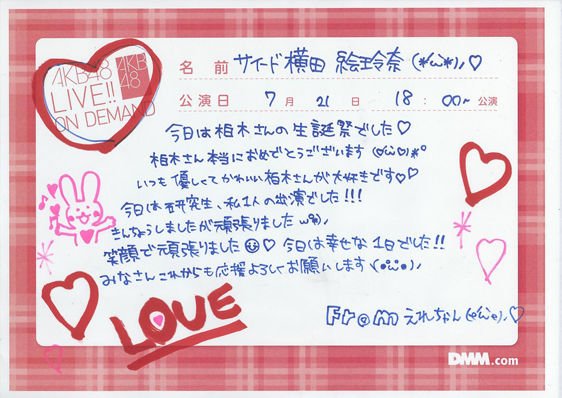 AKB48
LIVE!!
ON DEMAND
AKB
48
名 前 サイード横田 絵玲奈 (*'ω'*)ノ♡
公演日 7月 21日 18:00~公演
今日は柏木さんの生誕祭でした♡
柏木さん本当におめでとうございます(♡'ω'♡)*°
いつも優しくてかわいい柏木さんが大好きです♡♡
今日は研究生、私1人の出演でした!!!
きんちょうしましたが頑張りました
笑顔で頑張りました☺♡ 今日は幸せな1日でした!!
みなさんこれからも応援よろしくお願いします(•'ω'•)ノ
LOVE
From えれちゃん(•'ω'•)ノ♡
DMM.com